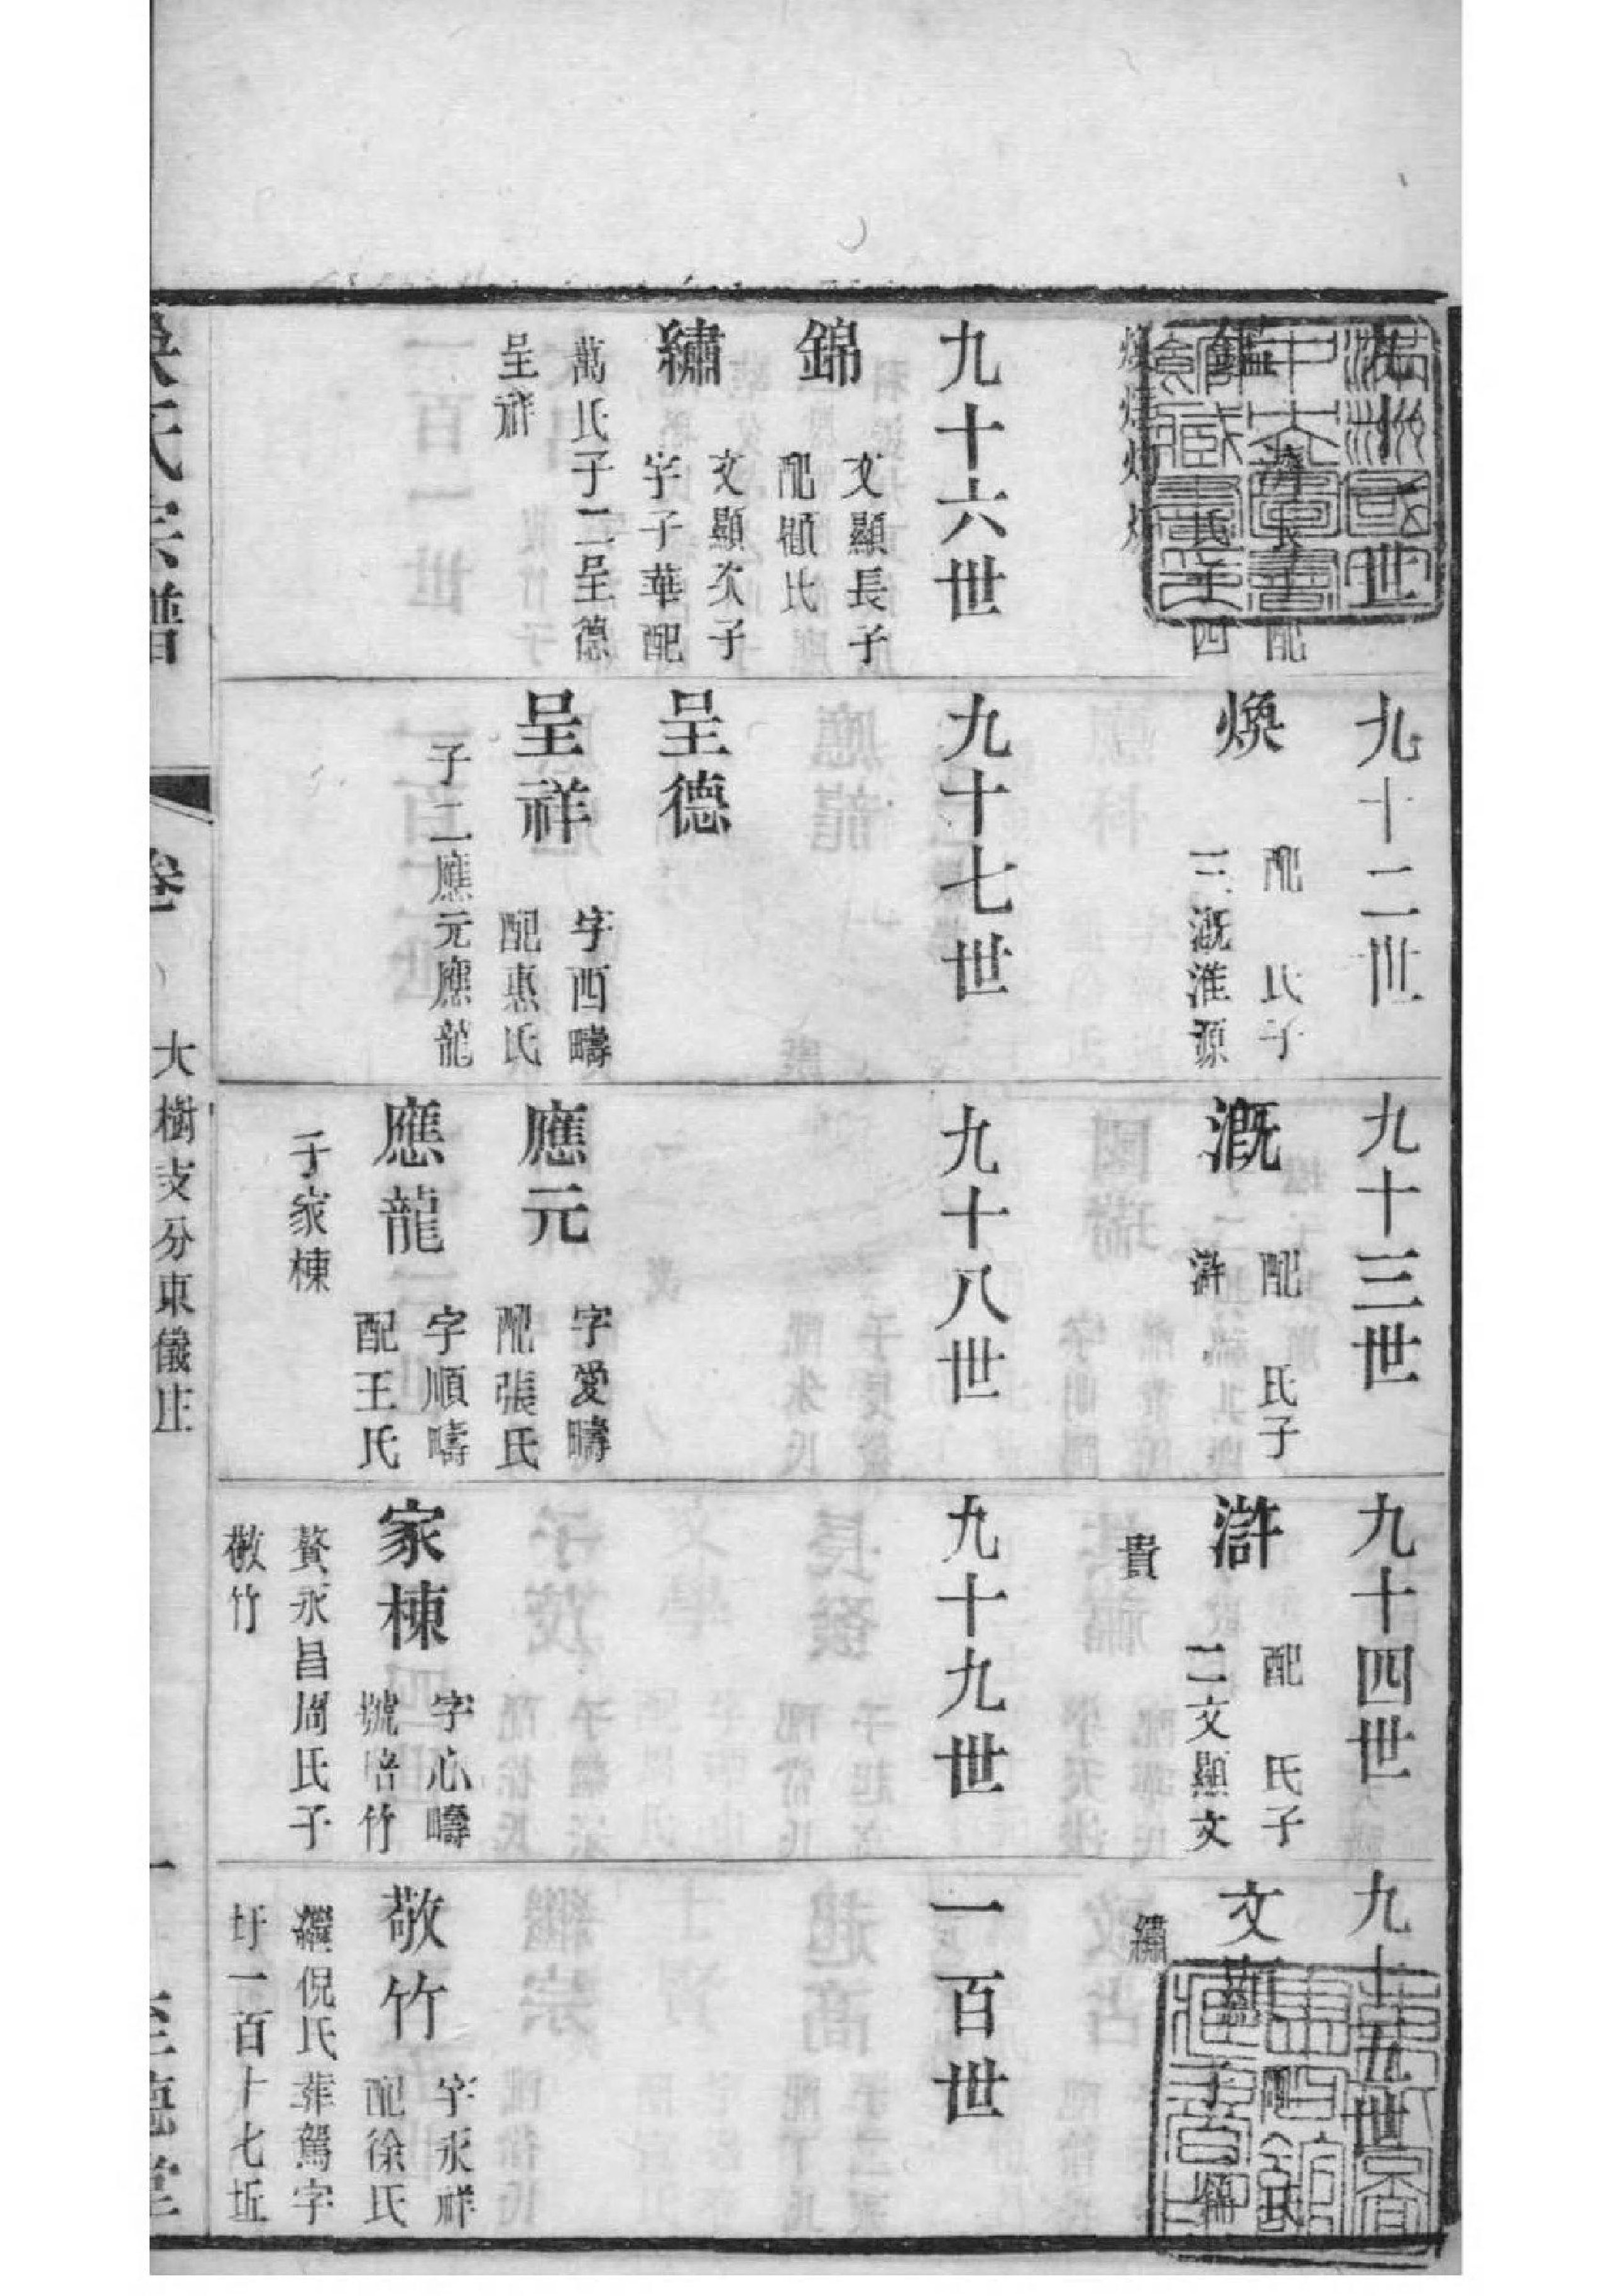 九十一世
鑑
濟長子配
氏子四
煥
九十二世
煥
配　氏子
三溉淮源
九十三世
溉
配　氏子
滸
九十四世
滸
配　氏子
二文顯文
貴
九十五世
文顯
配　氏
子　錦
繡
九十六世
錦
文顯長子
配顧氏
繡
文顯次子
字子華配
萬氏子二呈德
呈祥
九十七世
呈德
呈祥
字西疇
配惠氏
子二應元應龍
九十八世
應元
字愛疇
配張氏
應龍
字順疇
配王氏
子家棟
九十九世
家棟
字心疇
號培竹
贅永昌周氏子
敬竹
一百世
敬竹
字永祥
配徐氏
繼倪氏葬駕字
圩一百十七坵
氏宗譜
卷一
大樹支分東儀庄
一
至德堂